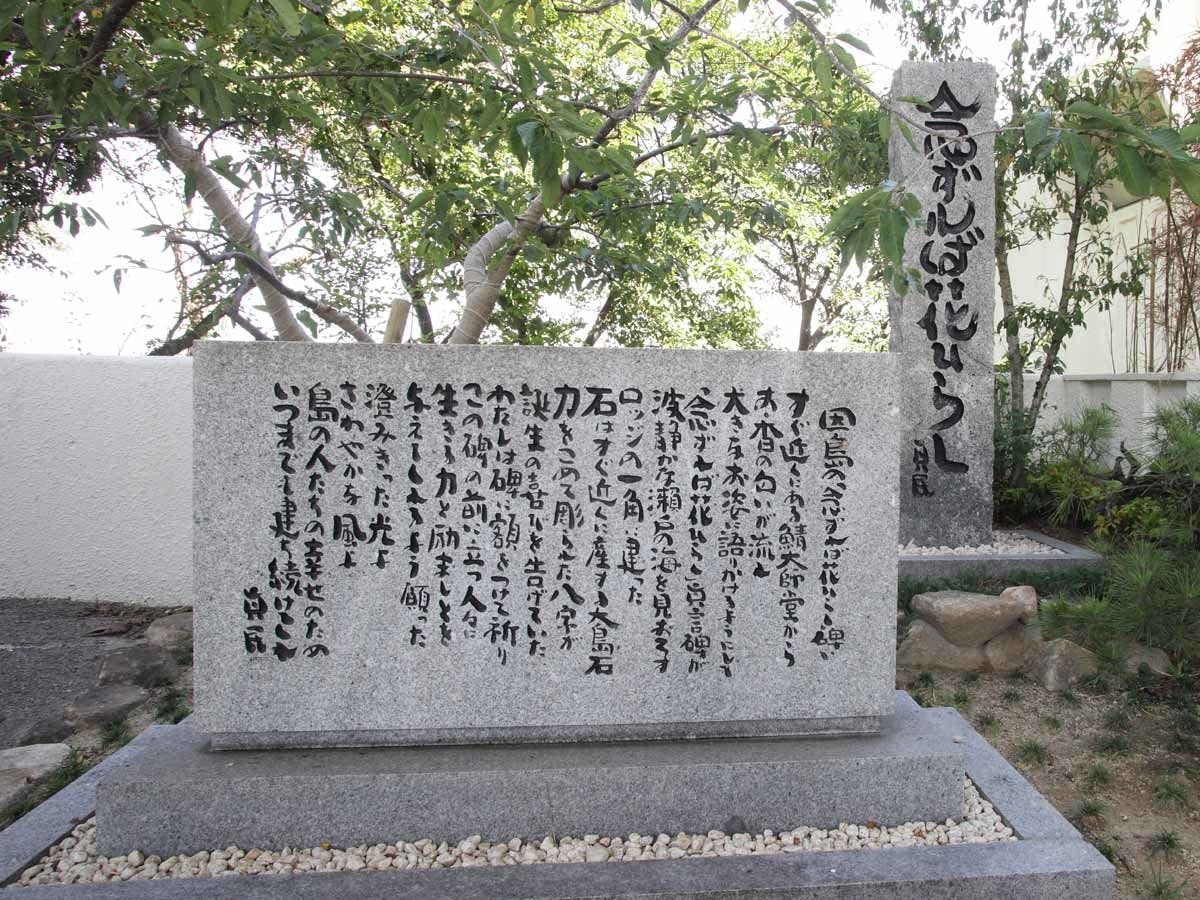 念ずれば花ひらく
真民
因島の「念ずれば花ひらく」碑に
すぐ近くにある鯖大師堂から
お香の匂いが流れ
大きなお姿が語りかけるようにして
念ずれば花ひらく真言碑が
波静かな瀬戸の海を見おろす
ロッジの一角に建った
石はすぐ近くに産する大島石
力をこめて彫られた八字が
誕生の喜びを告げていた
わたしは碑に額をつけて祈り
この碑の前に立つ人々に
生きる力と励ましとを
与えてくれるよう願った
澄みきった光よ
さわやかな風よ
島の人たちの幸せのため
いつまでも建ち続けてくれ
真民